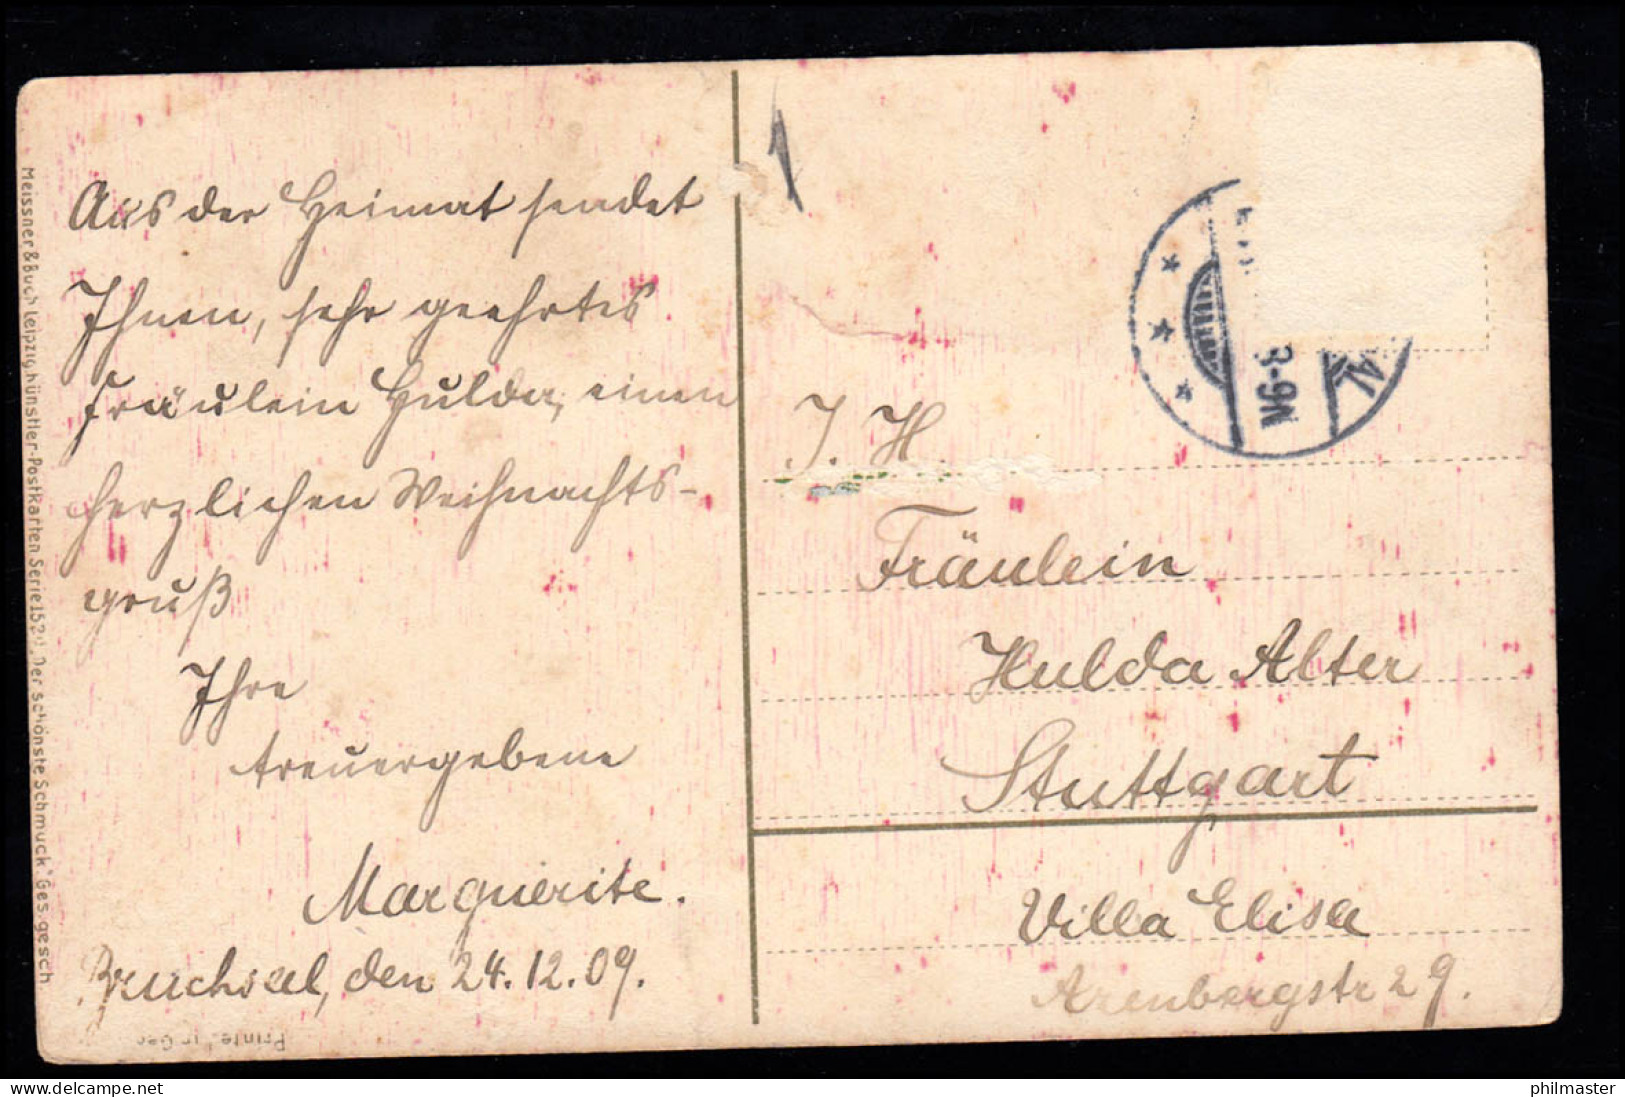 Aus der Heimat sendet
Ihnen, sehr geehrtes
Fräulein Hulda, einen
herzlichen Weihnachts-
gruß
Ihre
treuergebene
Marguerite.
Bruchsal, den 24.12.09.
Meissner & Buch Leipzig Künstler-Postkarten Serie „Der Schönste Schmuck" Ges. gesch
1
J. H.
Fräulein
Hulda Alter
Stuttgart
Villa Elisa
Arenbergstr 29.
3-9N
AL
delcampe.net
philmaster